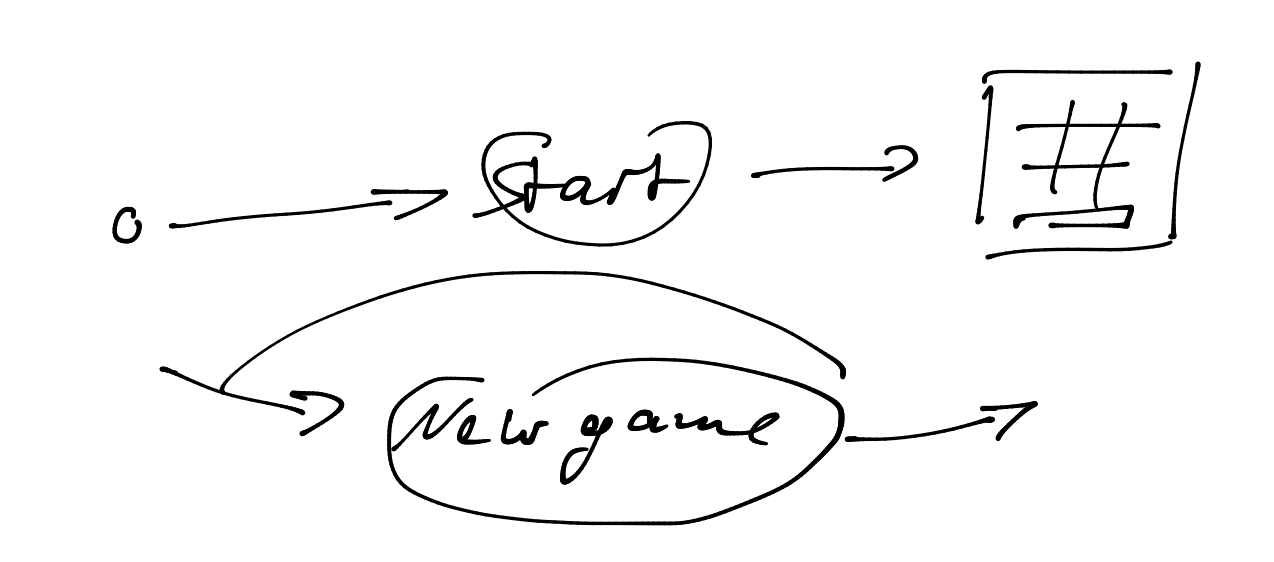 Start
New game